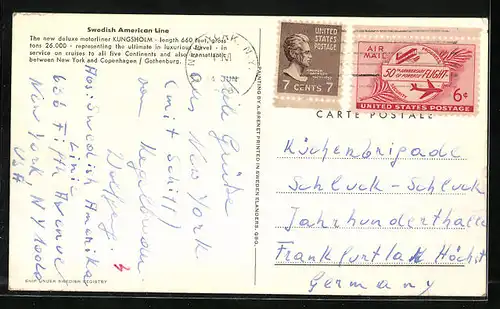 Swedish American Line
The new deluxe motorliner KUNGSHOLM - length 660 feet, gross
tons 26.000 - representing the ultimate in luxurious travel - in
service on cruises to all five continents and also transatlantic
between New York and Copenhagen / Gothenburg.
Viele Grüße
aus New York
(mit Schiff)
vom
Wolfgang
Abs: Swedish Amerika
Linie
636 Fifth Avenue
New York, NY 10020
USA
SHIP UNDER SWEDISH REGISTRY
PAINTING BY A. BRENET PRINTED IN SWEDEN ELANDERS, GBG.
N.Y.
UNITED STATES
POSTAGE
7 CENTS 7
AIR
MAIL
50TH ANNIVERSARY
OF POWERED FLIGHT
6¢
UNITED STATES POSTAGE
CARTE POSTALE
Küchenbrigade
Schluck-Schluck
Jahrhunderthalle
Frankfurt Höchst
Germany